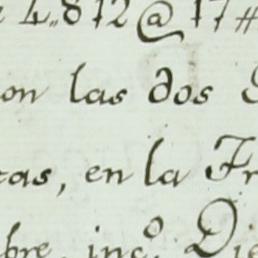 4,,872@17#
on las dos
cas, en la Fr
bre, inc.º Die